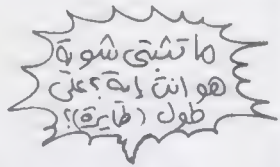 ما تثبتي شوية
هو انتِ إية؟ على
طول (طايرة)؟